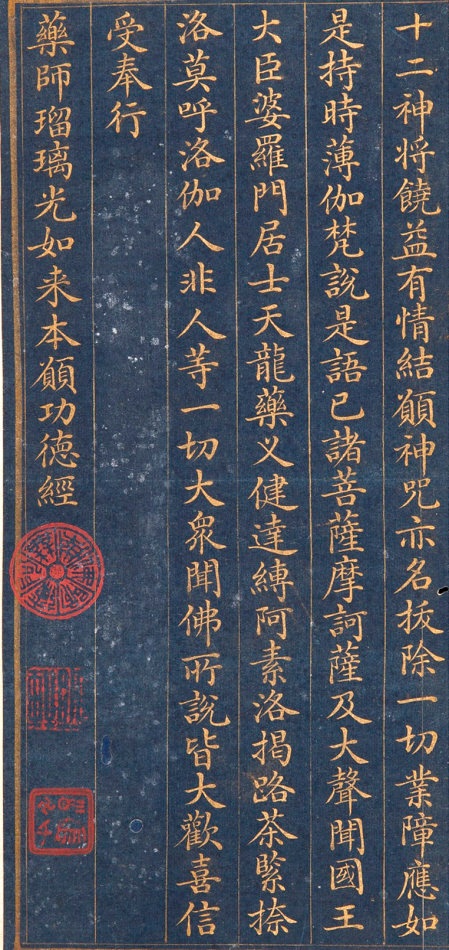 十二神将饒益有情結願神呪亦名拔除一切業障應如
是持時薄伽梵說是語已諸菩薩摩訶薩及大聲聞國王
大臣婆羅門居士天龍藥义健達縛阿素洛揭路茶緊捺
洛莫呼洛伽人非人等一切大衆聞佛所說皆大歡喜信
受奉行
藥師瑠璃光如来本願功德經